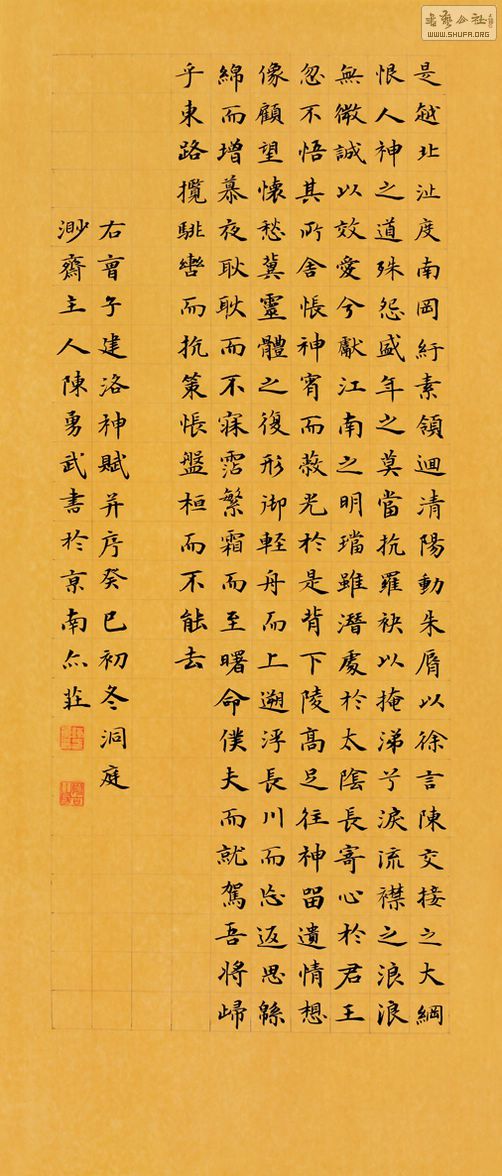 是越北沚度南岡紆素領迴清陽動朱脣以徐言陳交接之大綱
恨人神之道殊怨盛年之莫當抗羅袂以掩涕兮淚流襟之浪浪
無微誠以效愛兮獻江南之明璫雖潛處於太陰長寄心於君王
忽不悟其所舍悵神宵而蔽光於是背下陵高足往神留遺情想
像顧望懷愁冀靈體之復形御輕舟而上遡浮長川而忘返思緜
綿而增慕夜耿耿而不寐霑繁霜而至曙命僕夫而就駕吾將歸
乎東路攬騑轡而抗策悵盤桓而不能去
右曹子建洛神賦并序癸巳初冬洞庭
渺齋主人陳勇武書於京南莊
書藝公社
WWW.SHUFA.ORG